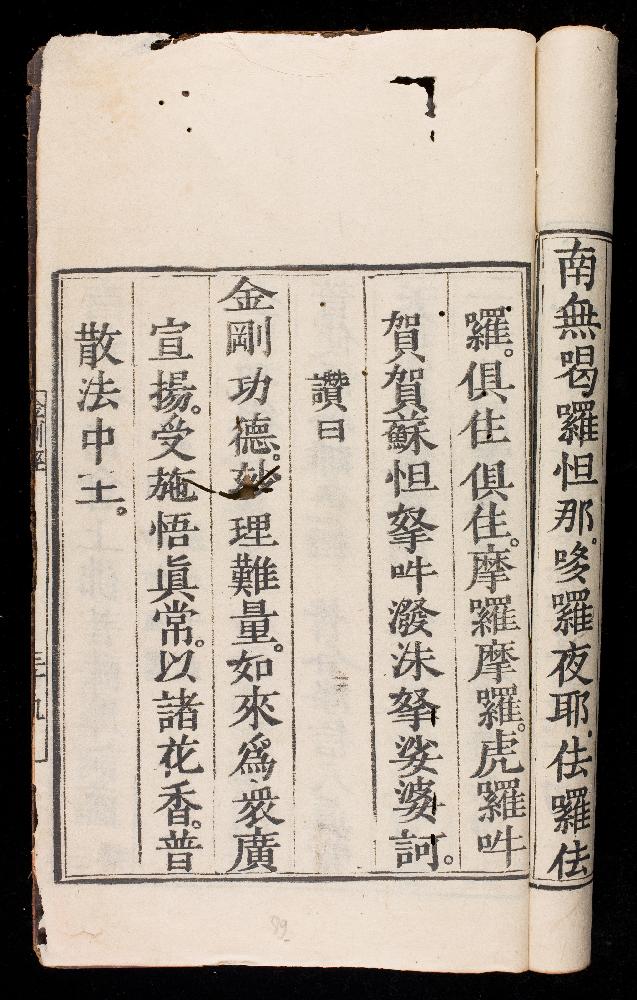 南無喝羅怛那。哆羅夜耶。佉羅佉
羅。俱住俱住。摩羅摩羅。虎羅吽
賀賀蘇怛拏吽潑沬拏娑婆訶。
讚曰
金剛功德。妙理難量。如來爲衆廣
宣揚。受施悟眞常。以諸花香。普
散法中王。
金剛經
三十九
89